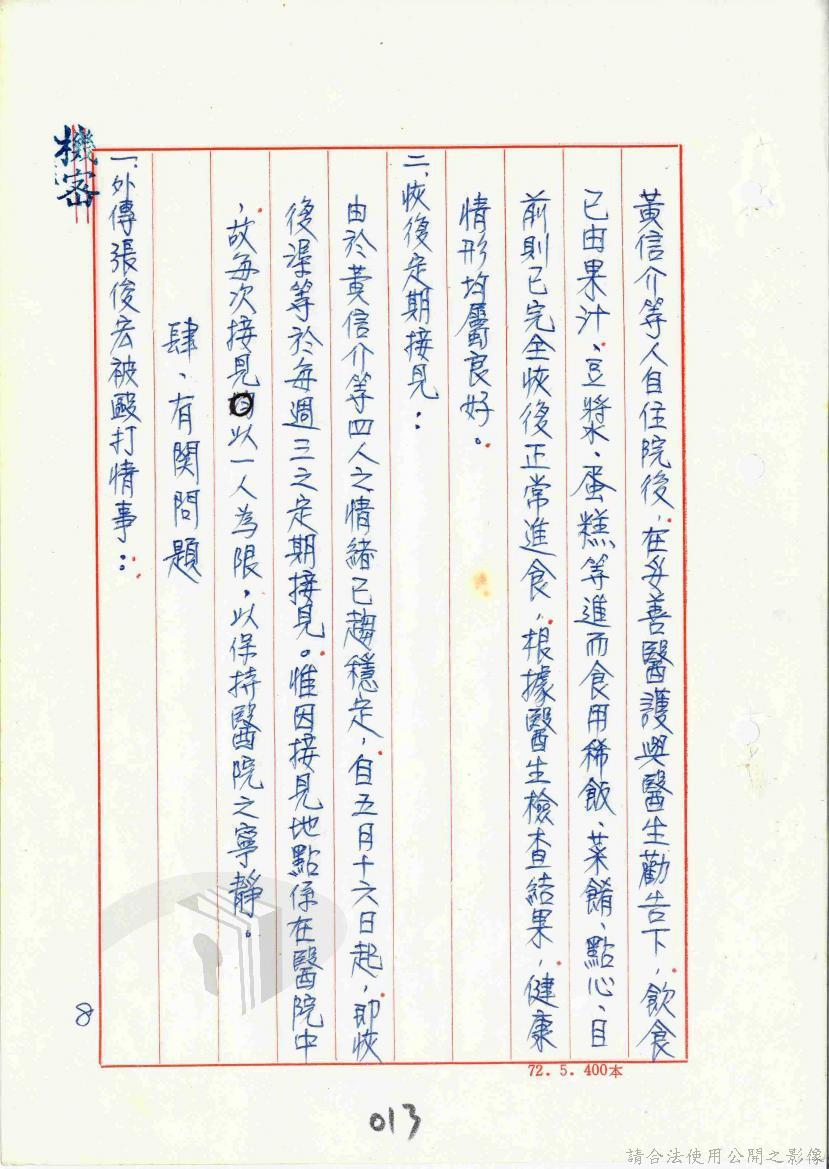 機密
黃信介等人自住院後，在妥善醫護與醫生勸告下，飲食
已由果汁、豆漿、蛋糕等進而食用稀飯、菜餚、點心、目
前則已完全恢復正常進食，根據醫生檢查結果，健康
情形均屬良好。
二、恢復定期接見：
由於黃信介等四人之情緒已趨穩定，自五月十六日起，即恢
復渠等於每週三之定期接見。惟因接見地點係在醫院中
，故每次接見以一人為限，以保持醫院之寧靜。
肆、有関問題
一、外傳張俊宏被毆打情事：
8
72.5.400本
013
請合法使用公開之影像